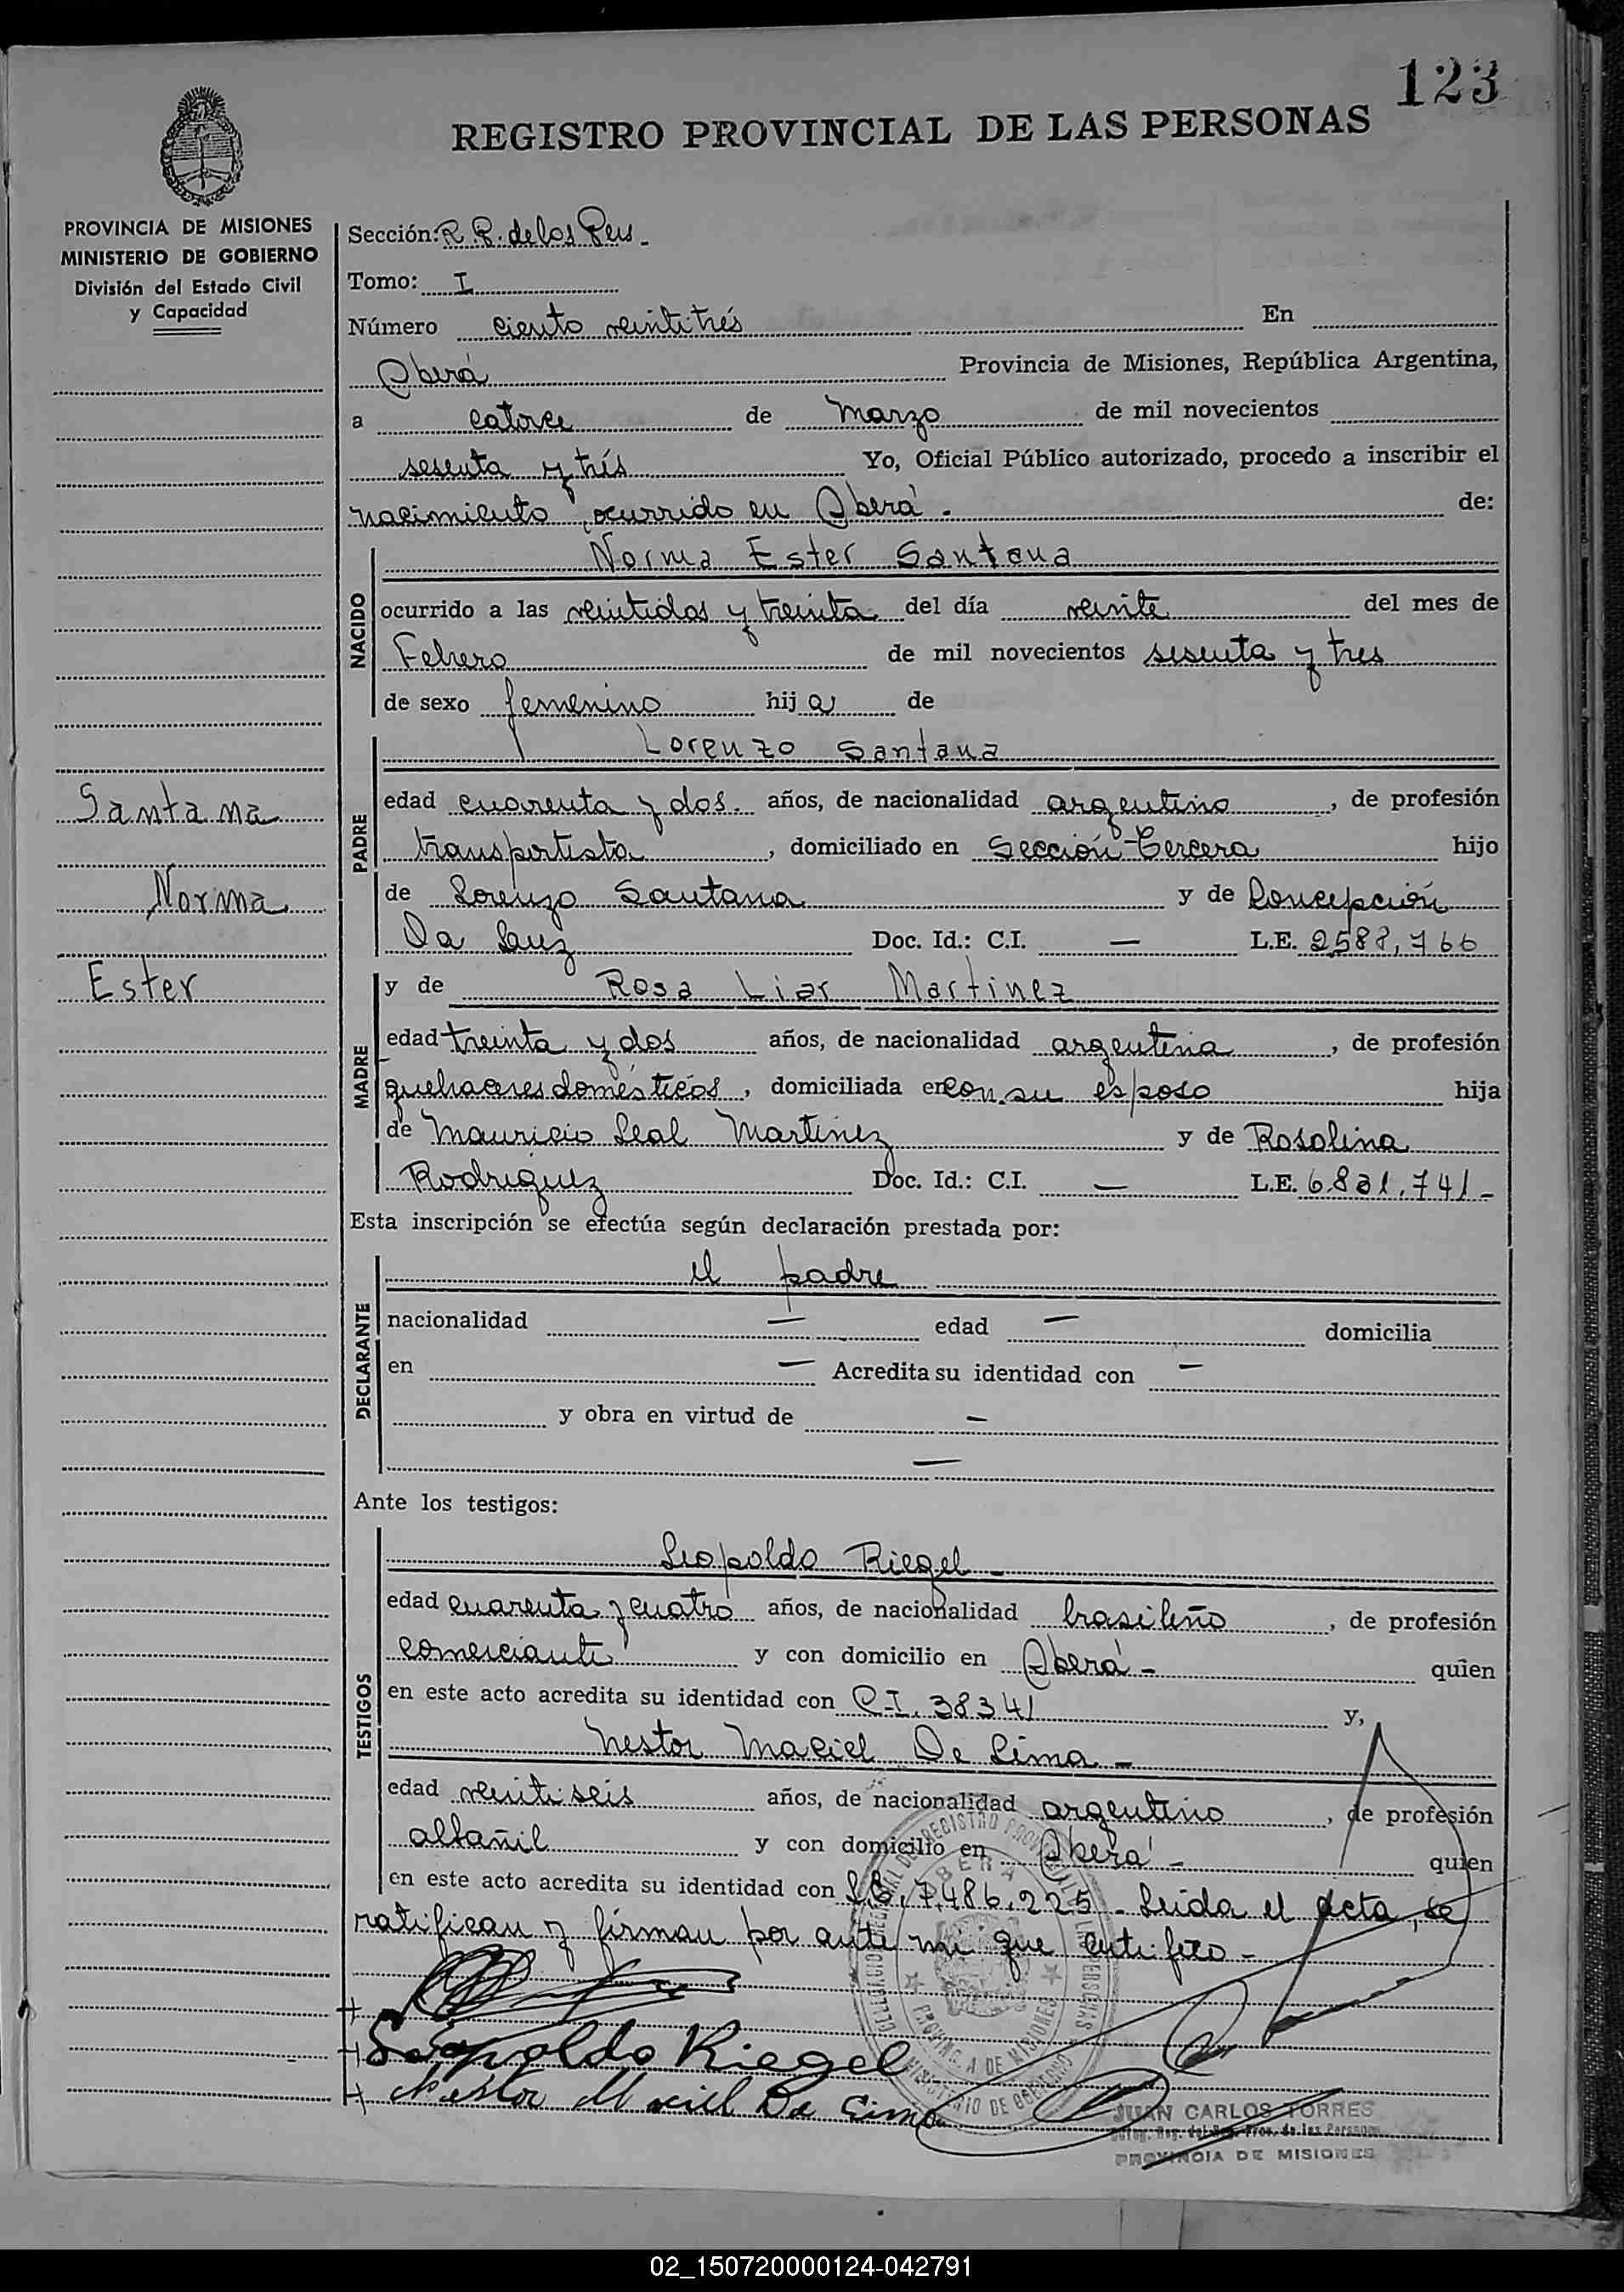 123
REGISTRO PROVINCIAL DE LAS PERSONAS
PROVINCIA DE MISIONES
MINISTERIO DE GOBIERNO
División del Estado Civil
y Capacidad
Santana
Norma
Ester
Sección: R.P. de las Pers.
Tomo: I
Número ciento veintitrés En
Oberá Provincia de Misiones, República Argentina,
a catorce de Marzo de mil novecientos
sesenta y trés Yo, Oficial Público autorizado, procedo a inscribir el
nacimiento ocurrido en Oberá. de:
NACIDO
Norma Ester Santana
ocurrido a las veintidos y treinta del día veinte del mes de
Febrero de mil novecientos sesenta y tres
de sexo femenino hija de
PADRE
Lorenzo Santana
edad cuarenta y dos. años, de nacionalidad argentino, de profesión
transportista, domiciliado en Sección Tercera hijo
de Lorenzo Santana y de Concepción
Da Luz Doc. Id.: C.I. — L.E. 2588,766
MADRE
y de Rosa Liar Martinez
edad treinta y dos años, de nacionalidad argentina, de profesión
quehaceres domésticos, domiciliada en con su esposo hija
de Mauricio Leal Martinez y de Rosolina
Rodriguez Doc. Id.: C.I. — L.E. 6.831.741-
Esta inscripción se efectúa según declaración prestada por:
DECLARANTE
el padre
nacionalidad — edad — domicilia
en — Acredita su identidad con —
y obra en virtud de —
—
Ante los testigos:
TESTIGOS
Leopoldo Riegel -
edad cuarenta y cuatro años, de nacionalidad brasileño, de profesión
comerciante y con domicilio en Oberá - quien
en este acto acredita su identidad con C.I. 38341 y,
Nestor Maciel De Lima -
edad veintiseis años, de nacionalidad argentino, de profesión
albañil y con domicilio en Oberá - quien
en este acto acredita su identidad con L.E. 7.486.225 - Leida el acta, se
ratifican y firman por ante mi que certifico -
Leopoldo Riegel
Nestor Maciel De Lima
DELEGACION REGIONAL DEL REGISTRO PROVINCIAL DE LAS PERSONAS
OBERA
PROVINCIA DE MISIONES
MINISTERIO DE GOBIERNO
JUAN CARLOS TORRES
Deleg. Reg. del Reg. Prov. de las Personas
PROVINCIA DE MISIONES
02_150720000124-042791